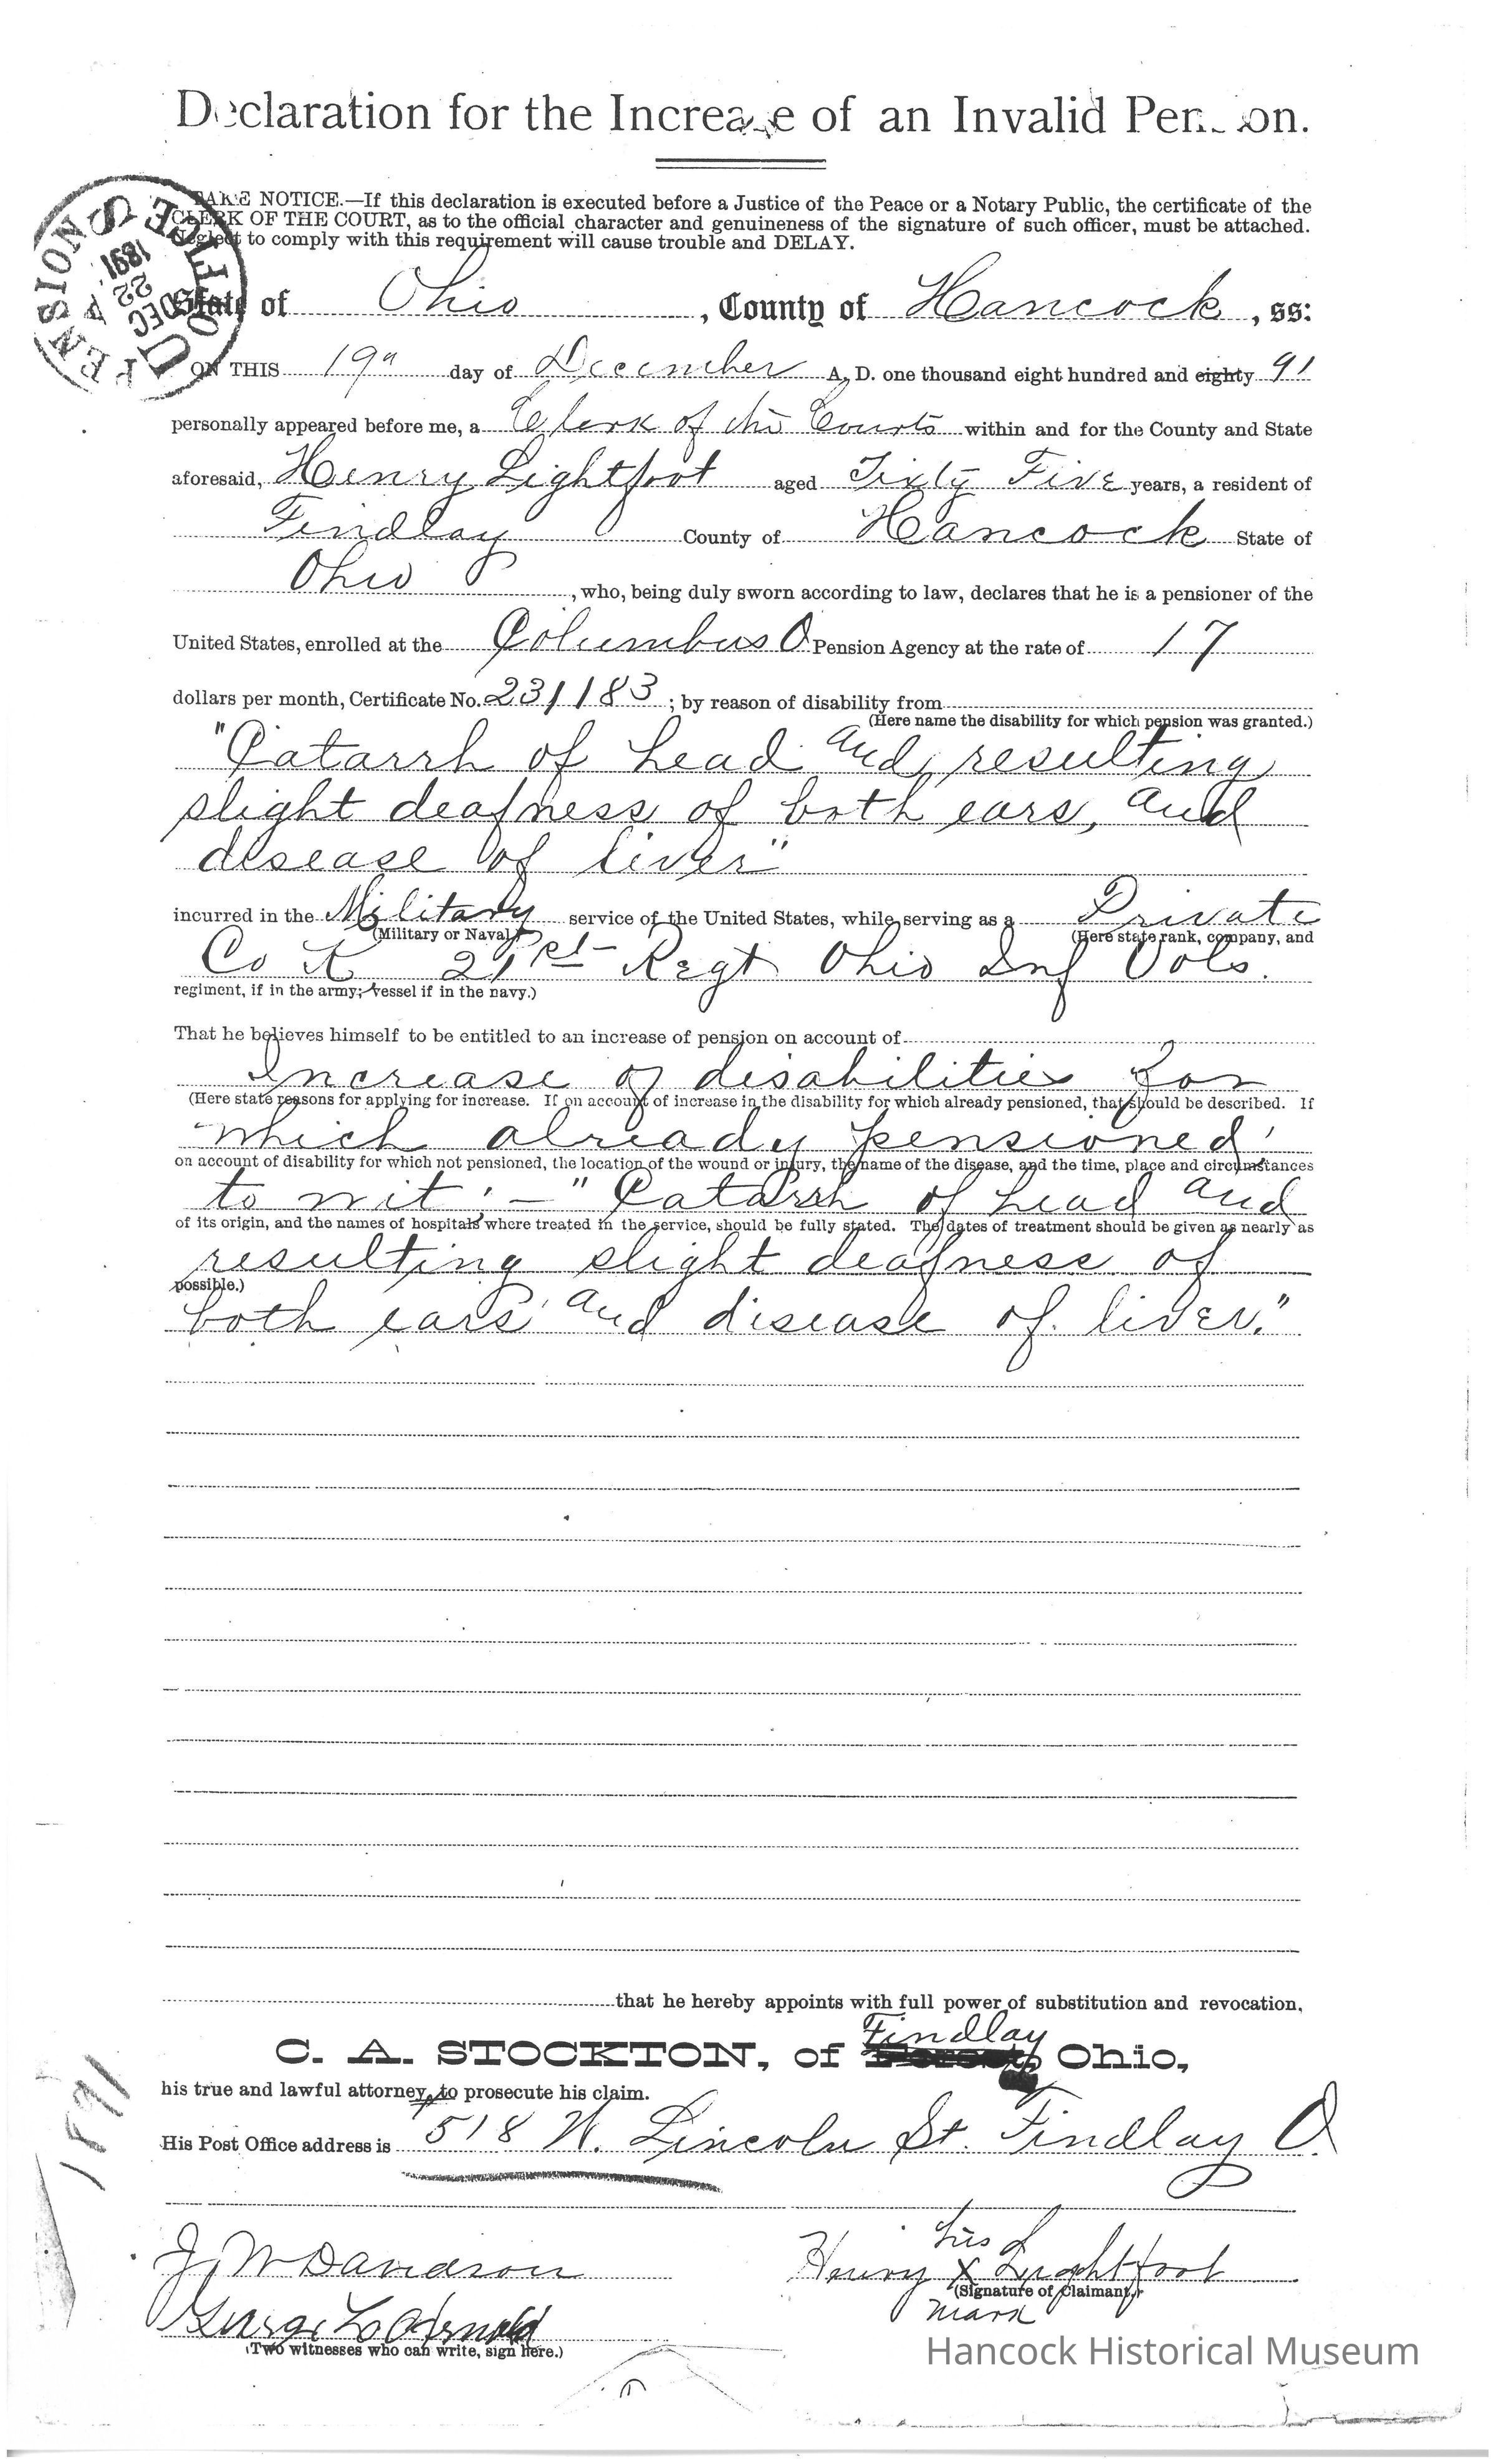 Declaration for the Increase of an Invalid Pension.
TAKE NOTICE.—If this declaration is executed before a Justice of the Peace or a Notary Public, the certificate of the
CLERK OF THE COURT, as to the official character and genuineness of the signature of such officer, must be attached.
Neglect to comply with this requirement will cause trouble and DELAY.
U.S. PENSION OFFICE
DEC 22 1891
State of Ohio, County of Hancock, ss:
ON THIS 19" day of December A. D. one thousand eight hundred and eighty 91
personally appeared before me, a Clerk of the Courts within and for the County and State
aforesaid, Henry Lightfoot aged Sixty Five years, a resident of
Findlay County of Hancock State of
Ohio, who, being duly sworn according to law, declares that he is a pensioner of the
United States, enrolled at the Columbus O. Pension Agency at the rate of 17
dollars per month, Certificate No. 231183; by reason of disability from
(Here name the disability for which pension was granted.)
"Catarrh of head and resulting
slight deafness of both ears, and
disease of liver"
incurred in the Military service of the United States, while serving as a Private
(Military or Naval) (Here state rank, company, and
Co K 21st Regt Ohio Inf Vols.
regiment, if in the army; vessel if in the navy.)
That he believes himself to be entitled to an increase of pension on account of
Increase of disabilities for
(Here state reasons for applying for increase. If on account of increase in the disability for which already pensioned, that should be described. If
which already pensioned
on account of disability for which not pensioned, the location of the wound or injury, the name of the disease, and the time, place and circumstances
to wit:— "Catarrh of head and
of its origin, and the names of hospitals where treated in the service, should be fully stated. The dates of treatment should be given as nearly as
resulting slight deafness of
possible.)
both ears and disease of liver."
that he hereby appoints with full power of substitution and revocation,
Findlay
C. A. STOCKTON, of Ohio,
his true and lawful attorney, to prosecute his claim.
1891
His Post Office address is 518 W. Lincoln St. Findlay O.
his
J. W. Davidson Henry X Lightfoot
(Signature of Claimant.)
mark
George L
(Two witnesses who can write, sign here.)
Hancock Historical Museum